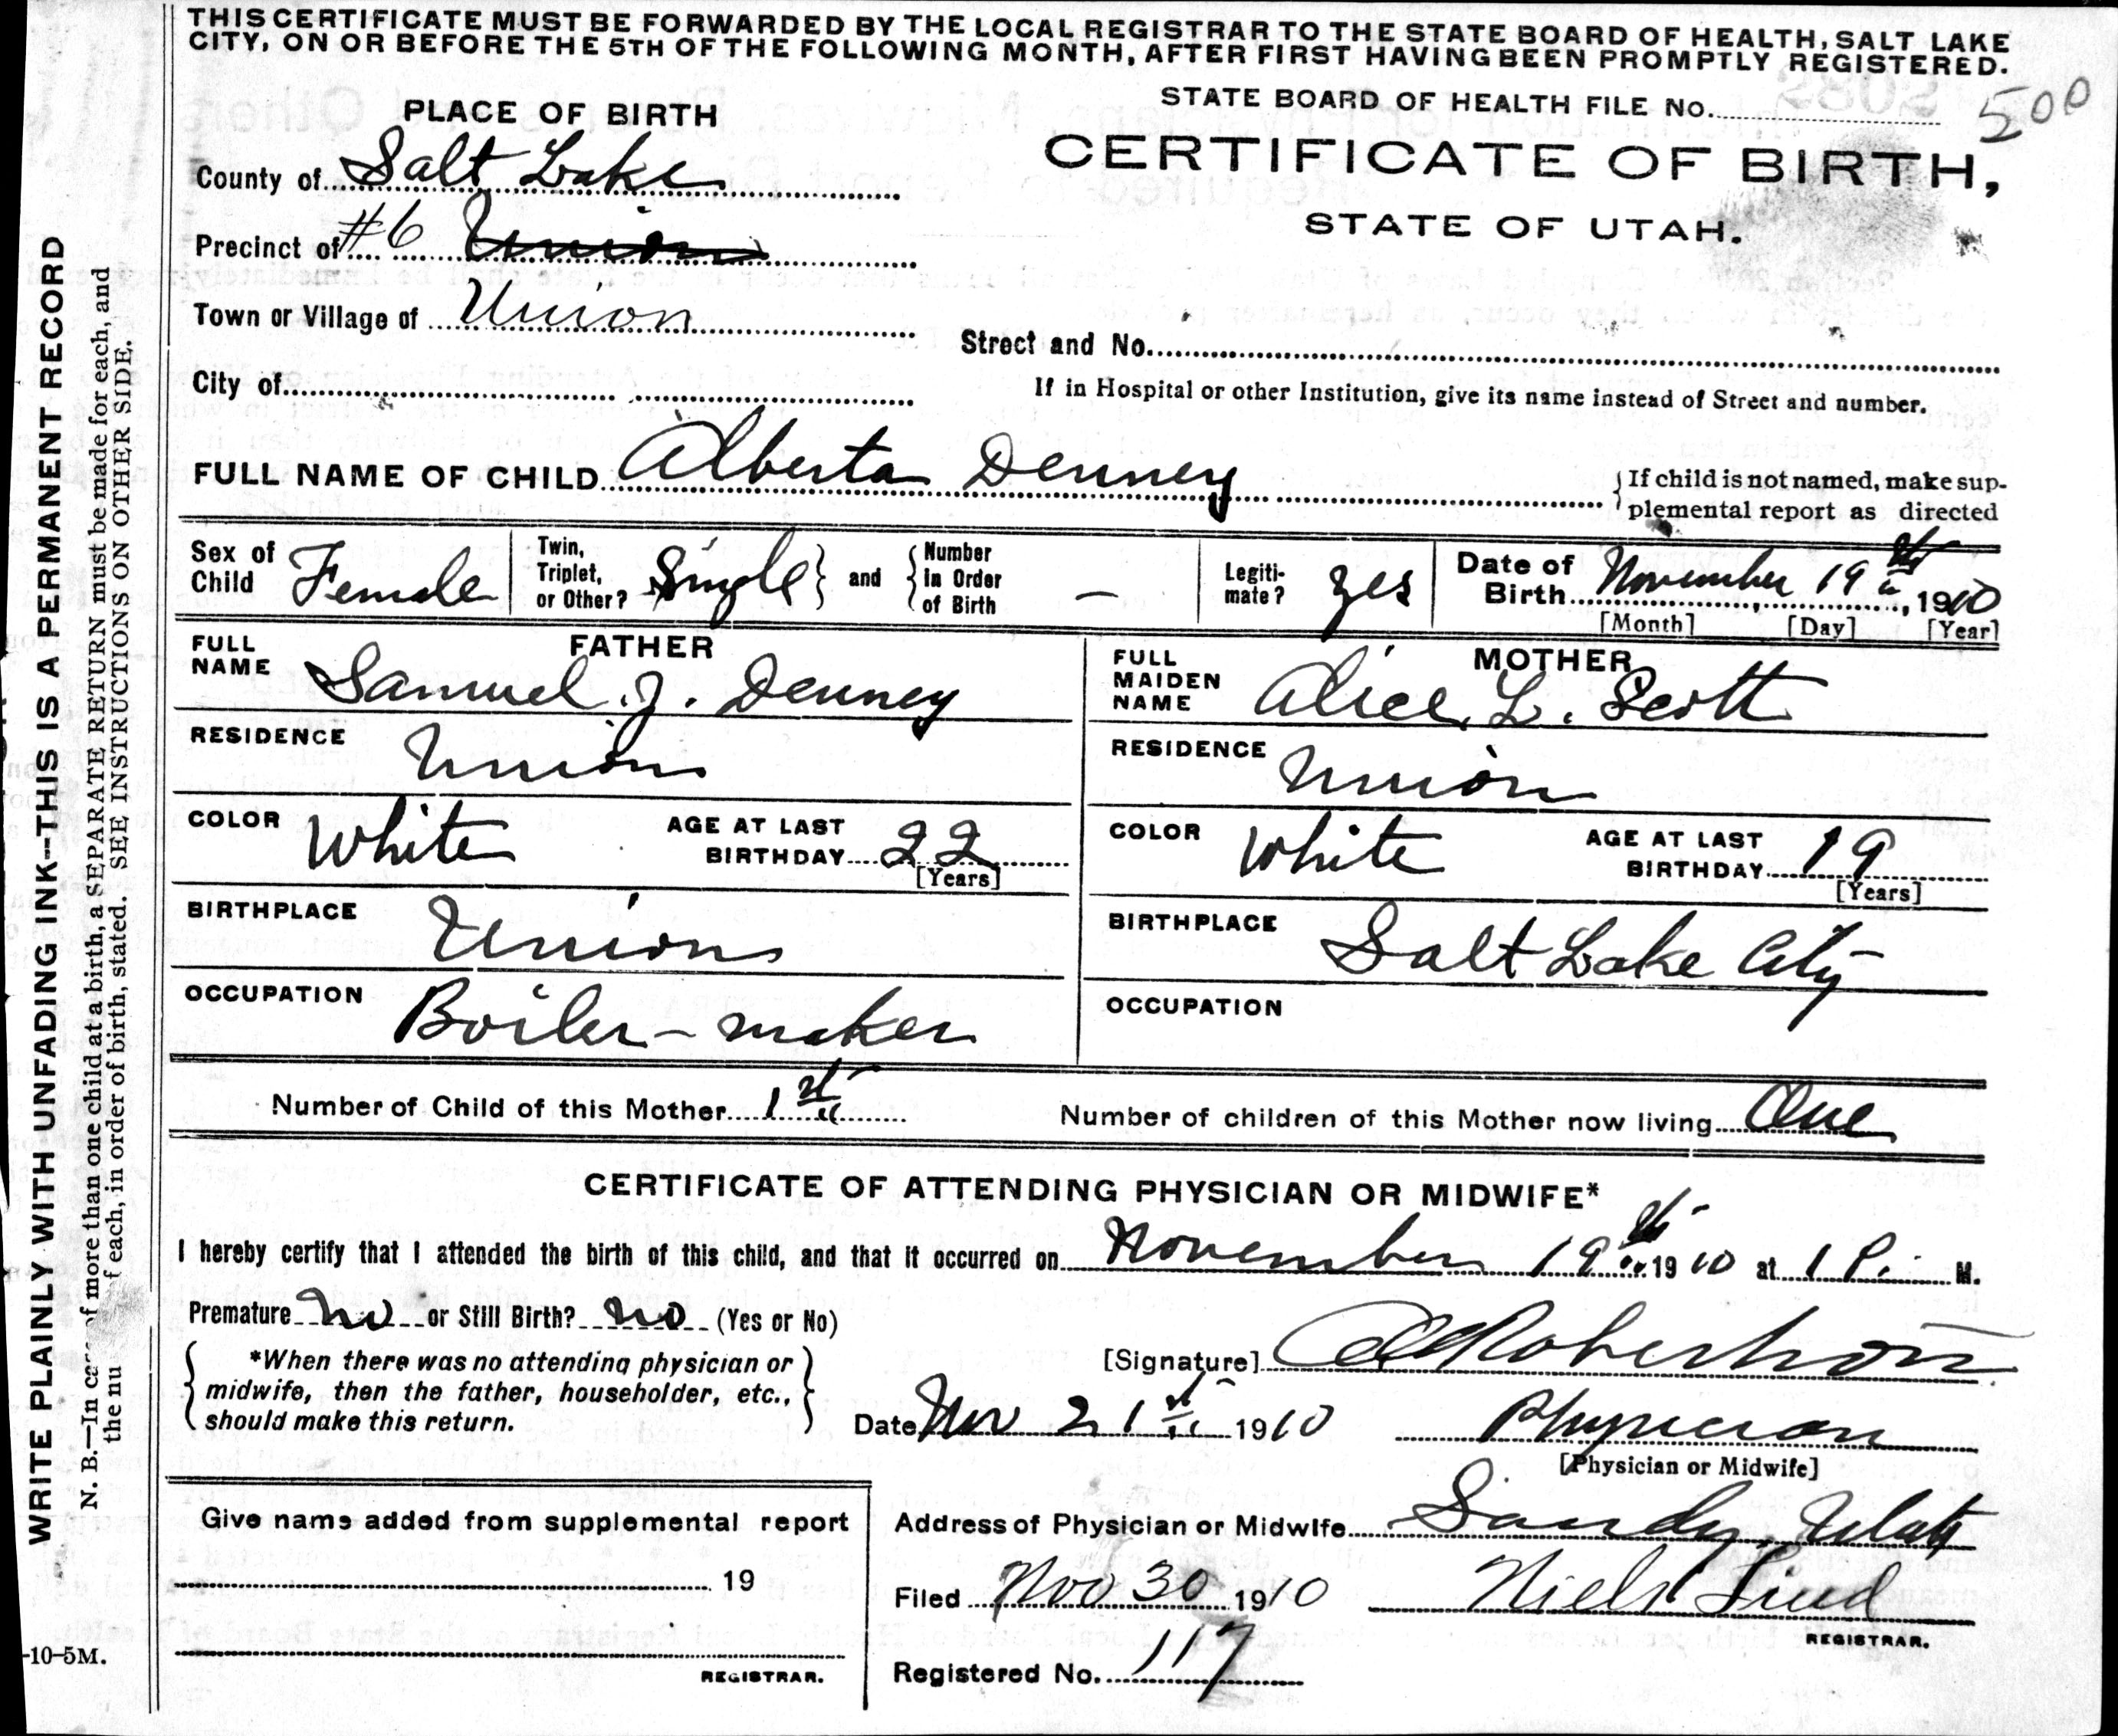 THIS CERTIFICATE MUST BE FORWARDED BY THE LOCAL REGISTRAR TO THE STATE BOARD OF HEALTH, SALT LAKE
CITY, ON OR BEFORE THE 5TH OF THE FOLLOWING MONTH, AFTER FIRST HAVING BEEN PROMPTLY REGISTERED.
STATE BOARD OF HEALTH FILE No. 500
PLACE OF BIRTH
CERTIFICATE OF BIRTH,
STATE OF UTAH.
County of Salt Lake
Precinct of #6 Union
Town or Village of Union
Street and No.
City of
If in Hospital or other Institution, give its name instead of Street and number.
FULL NAME OF CHILD Alberta Denney
{If child is not named, make sup-
plemental report as directed
Sex of
Child Female
Twin,
Triplet,
or Other? Single } and { Number
in Order
of Birth —
Legiti-
mate? yes
Date of
Birth November 19th, 1910
[Month] [Day] [Year]
FATHER
FULL
NAME Samuel J. Denney
RESIDENCE Union
COLOR White
AGE AT LAST
BIRTHDAY 22
[Years]
BIRTHPLACE Union
OCCUPATION Boiler-maker
MOTHER
FULL
MAIDEN
NAME Alice L. Scott
RESIDENCE Union
COLOR White
AGE AT LAST
BIRTHDAY 19
[Years]
BIRTHPLACE Salt Lake City
OCCUPATION
Number of Child of this Mother 1st
Number of children of this Mother now living One
CERTIFICATE OF ATTENDING PHYSICIAN OR MIDWIFE*
I hereby certify that I attended the birth of this child, and that it occurred on November 19th 1910 at 1 P. M.
Premature no or Still Birth? no (Yes or No)
{ *When there was no attending physician or
midwife, then the father, householder, etc.,
should make this return. }
[Signature] Robertson
Date Nov 21st 1910
Physician
[Physician or Midwife]
Address of Physician or Midwife Sandy, Utah
Filed Nov 30 1910 Niels Lind
REGISTRAR.
Registered No. 117
Give name added from supplemental report
19
REGISTRAR.
WRITE PLAINLY WITH UNFADING INK--THIS IS A PERMANENT RECORD
N. B.—In case of more than one child at a birth, a SEPARATE RETURN must be made for each, and
the nu f each, in order of birth, stated. SEE INSTRUCTIONS ON OTHER SIDE.
-10-5M.